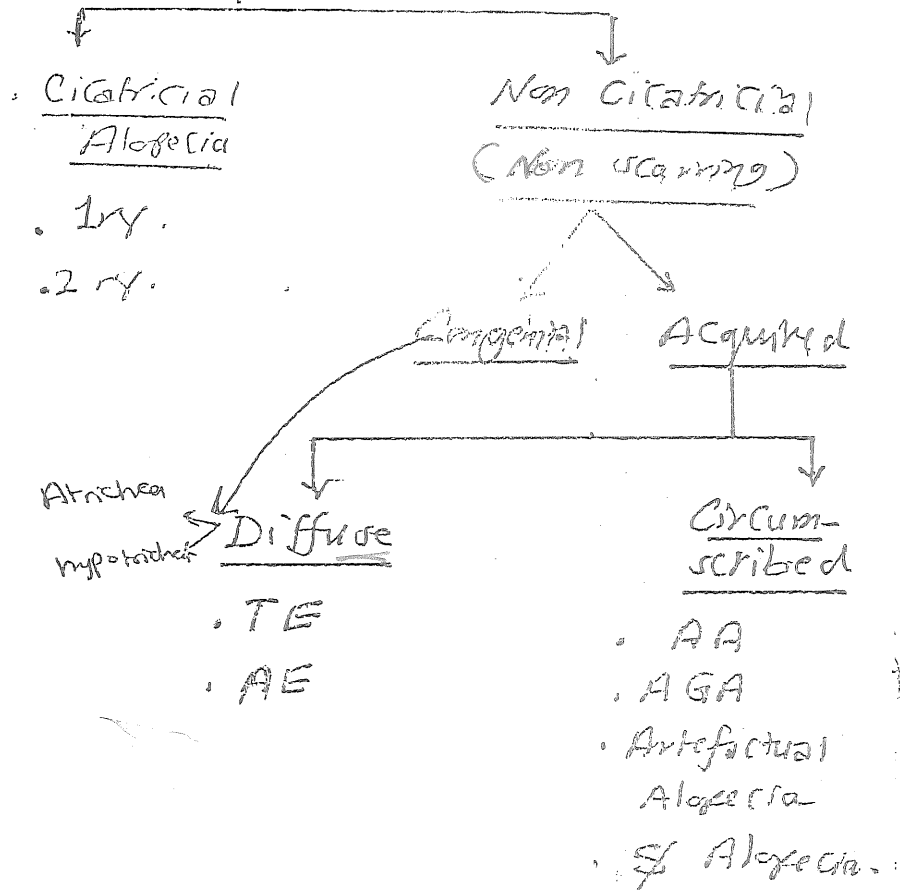 . Cicatricial
Alopecia
. 1ry.
. 2ry.
Non Cicatricial
(Non scarring)
Congenial
Acquired
Atrichea
Diffuse
. TE
. AE
Circum-
scribed
. AA
. AGA
. Artefactual
Alopecia
Alopecia.